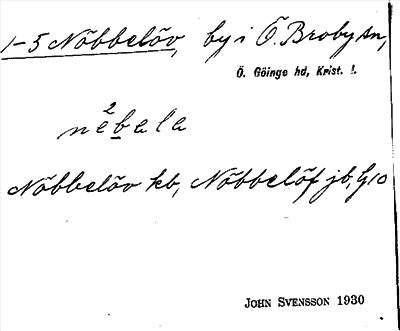 1-5 Nöbbelöv, by i Ö. Broby sn,
Ö. Göinge hd, Krist. l.
2
nebala
Nöbbelöv kb, Nöbbelöf jb, G10
JOHN SVENSSON 1930